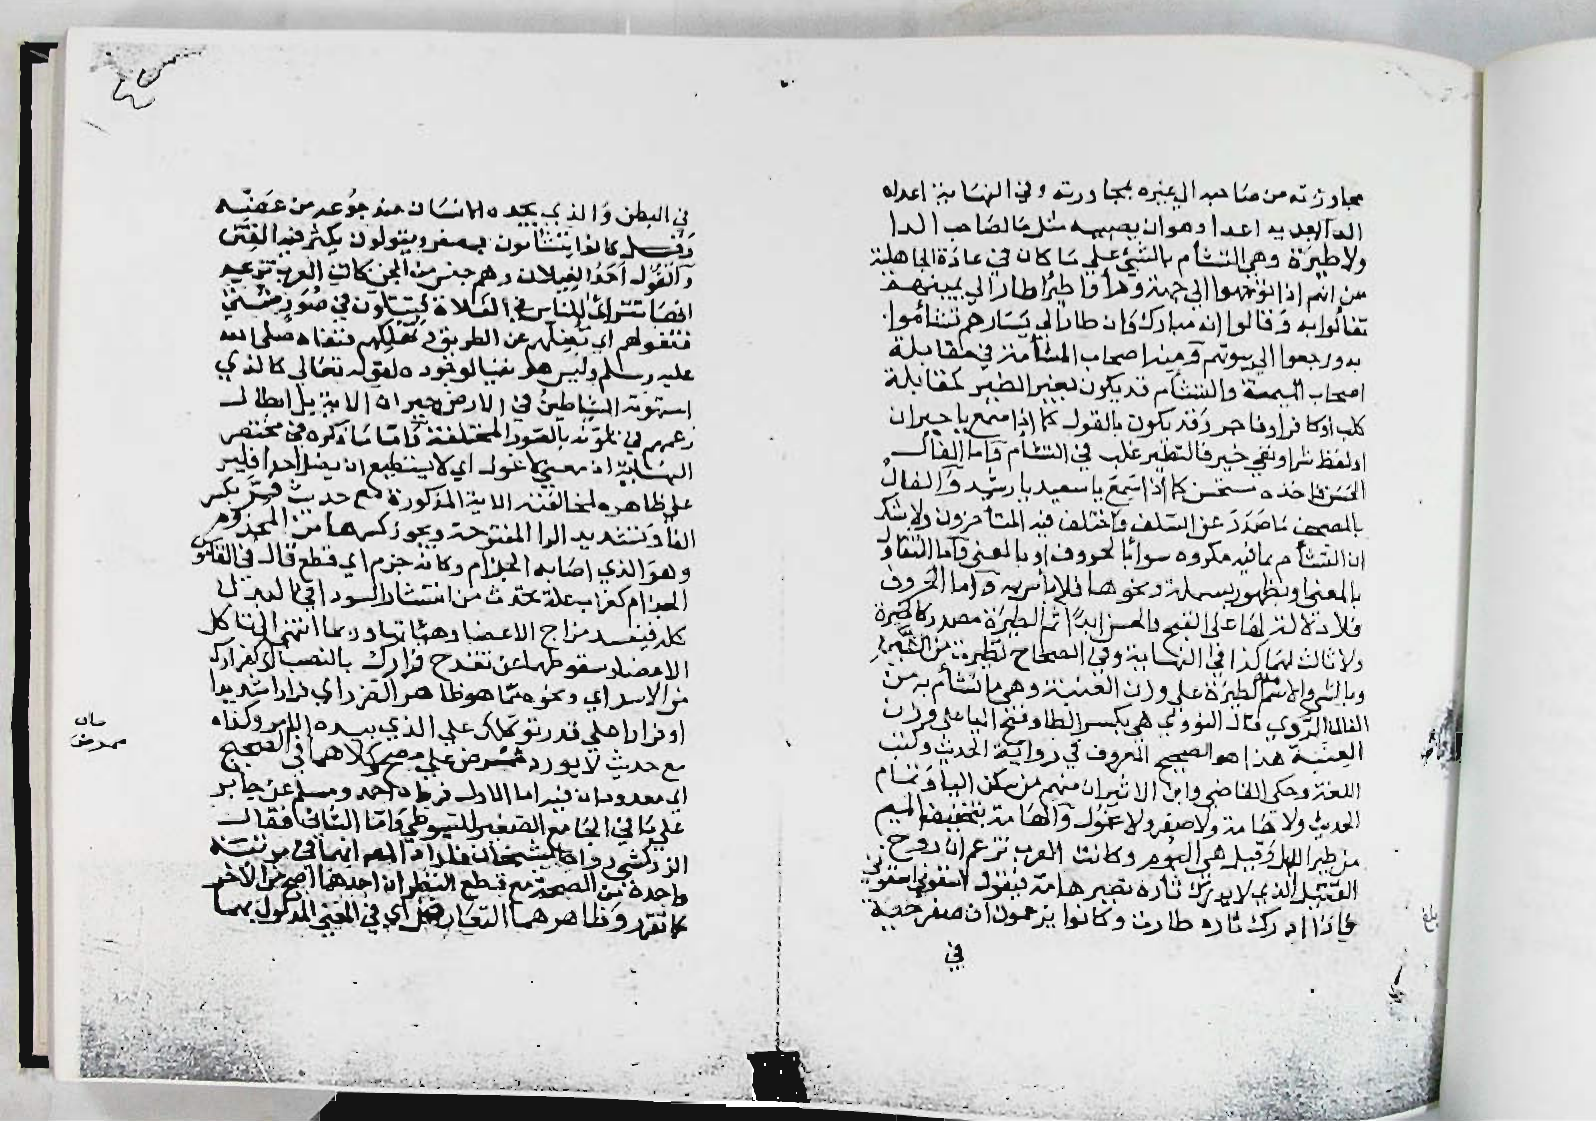 مجاوزته من صاحبه الي غيره بمجاورته وفي النهاية اعداه
الدا يعديه اعدا وهو ان يصيبه مثل ما لصاحب الدا
ولا طيرة وهي التشأم بالشيء علي ما كان في عادة الجاهلية
من انهم اذا توجهوا الي جهة وراوا طيرا طار الي يمينهم
تفالوا به وقالوا انه مبارك وان طار الي يسارهم تشأموا
به ورجعوا الي بيوتهم ومنه اصحاب المشأمة في مقابلة
اصحاب الميمنة والتشأم قد يكون بغير الطير كمقابلة
كلب او كافر او فاجر وقد يكون بالقول كما اذا سمع يا حيران
او لفظ شر او نفي خير فالتطير غلب في التشأم واما الفال
الحسن فاخذه مستحسن كما اذا سمع يا سعيد يا رشيد والفال
بالمصحف ما صدر عن السلف واختلف فيه المتأخرون ولا شك
ان التشأم بما فيه مكروه سوا بالحروف او بالمعني واما التفاول
بالمعني او بظهور بسملة ونحوها فلا باس به واما الحروف
فلا دلالة لها على القبح والحسن ابدا ثم الطيرة مصدر كالخيرة
ولا ثالث لهما كذا في النهاية وفي الصحاح تطيرت من الشيء
وبالشي والاسم منه الطيرة علي وزن العنبة وهي ما يتشأم به من
الفال الردي وقال النووي هي بكسر الطا وفتح اليا على وزن
العنبة هذا هو الصحيح المعروف في رواية الحديث وكتب
اللغة وحكى القاضي وابن الاثير ان منهم من سكن اليا وتمام
الحديث ولا هامة ولا صفر ولا غول والهامة بتخفيف الميم
من طير الليل وقيل هي البوم وكانت العرب تزعم ان روح
القتيل الذي لا يدرك ثاره تصير هامة فيقول اسقوني اسقوني
فاذا ادرك ثاره طارت وكانوا يزعمون ان صفر حية
في
في البطن والذي يجده الانسان عند جوعه من عضه
وقيل كانوا يتشأمون بصفر ويقولون يكثر فيه الفتن
والغول احد الغيلان وهم جنس من الجن كانت العرب تزعم
انها تتراي للناس في الفلاة فيتلون في صور شتي
فتغولهم اي تضلهم عن الطريق وتهلكهم فنفاه صلى الله
عليه وسلم وليس هذا نفيا لوجوده لقوله تعالى كالذي
استهوته الشياطين في الارض حيران الاية بل ابطال
زعمهم في تلونه بالصور المختلفة واما ما ذكره في مختصر
النهاية ان معني لا غول اي لا يستطيع ان يضل احدا فليس
علي ظاهره لمخالفته الاية المذكورة مع حديث فر بكسر
الفا وتشديد الرا المفتوحة ويجوز كسرها من المجذوم
وهو الذي اصابه الجذام وكانه جزم اي قطع قال في القاموس
الجذام كغراب علة تحدث من انتشار السودا في البدن
كله فيفسد مزاج الاعضا وهيئاتها وربما انتهي الى تاكل
الاعضا وسقوطها عن تقدح فرارك بالنصب اي كفرارك
من الاسد اي ونحوه مما هو ظاهر الضرر اي فرارا شديدا
او فرارا علي قدر توكلك علي الذي بيده الامر وكذا
مع حديث لا يورد ممرض علي مصح وكلاهما في الصحيح
اي معدودان فيه اما الاول فرواه احمد ومسلم عن جابر
علي ما في الجامع الصغير للسيوطي واما الثاني فقال
الزركشي رواه الشيخان فلا الهم انهما في مرتبة
واحدة من الصحة مع قطع النظر ان احدهما اصح من الاخر
كما تقرر وظاهرهما التعارض اي في المعني المدلول بهما
ممرض
بلغ